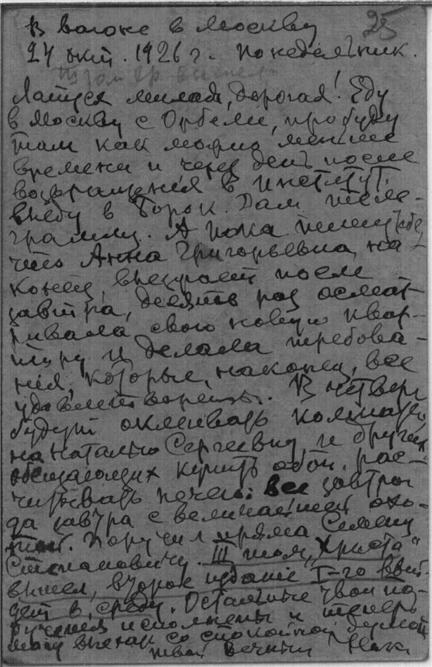 В вагоне в Москву
25
24 окт. 1926 г. понедельник.
милая, дорогая! Еду
в Москву с Орбели, пробуду
там как можно менее
времени и через день после
возвращения в институт,
выеду в Борок. Дам теле-
грамму. А пока пишу тебе,
что Анна Григорьевна, на-
конец, въезжает после
завтра, десять раз осмат-
ривала свою новую квар-
тиру и делала требова-
ния, которые, наконец, все
удовлетворены. В четверг
будут оклеивать комнату
на Наталью Сергеевну и других
обещающих купить обои, рас-
Все завтра
завтра с величайшей охо-
той. Поручил прямо Семену
Степановичу. III том „Христа"
вышел, второе издание I-го вый-
дет в среду. Остальные твои по-
ручения исполнены и теперь
могу выехать со спокойной душой
твой вечный Ник.